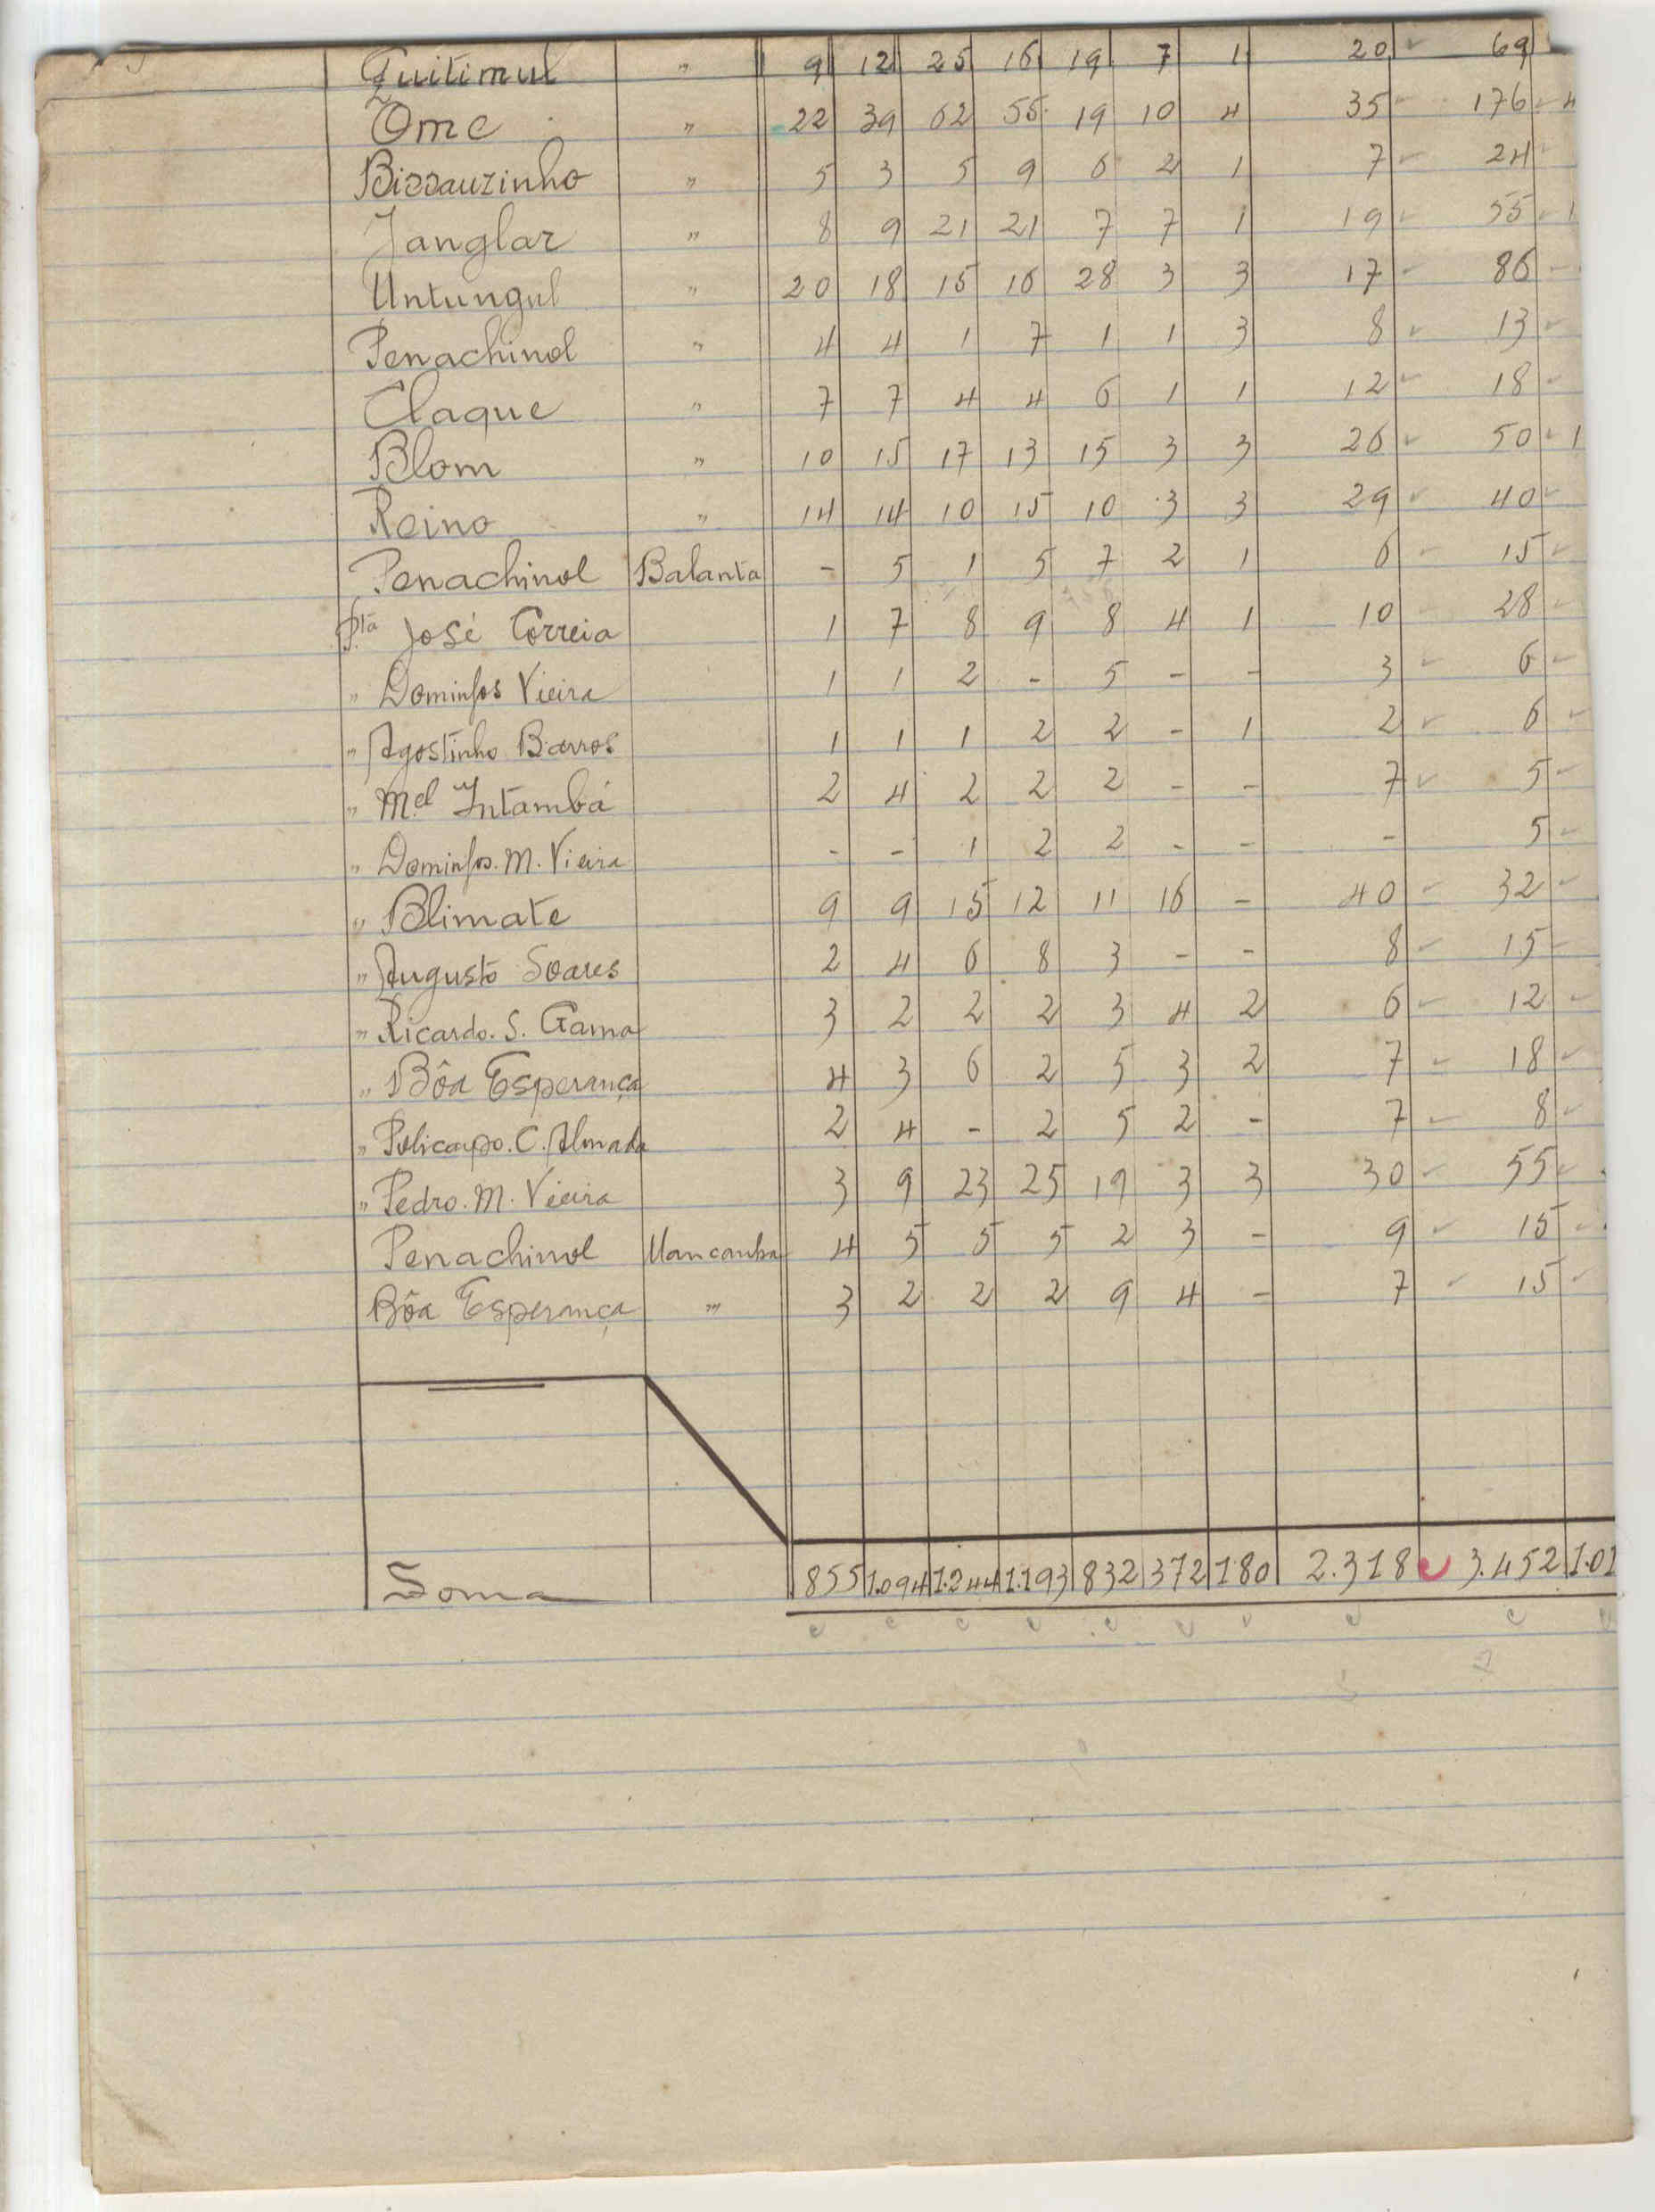 Quitimul " 9 12 25 16 19 7 1 20 69
Ome " 22 39 62 55 19 10 4 35 176
Bissauzinho " 5 3 5 9 6 2 1 7 24
Janglar " 8 9 21 21 7 7 1 19 55
Untungul " 20 18 15 16 28 3 3 17 86
Penachinol " 4 4 1 7 1 1 3 8 13
Claque " 7 7 4 4 6 1 1 12 18
Blom " 10 15 17 13 15 3 3 26 50
Reino " 14 14 10 15 10 3 3 29 40
Penachinol Balanta - 5 1 5 7 2 1 6 15
P.ta José Correia 1 7 8 9 8 4 1 10 28
" Domingos Vieira 1 1 2 - 5 - - 3 6
" Agostinho Barros 1 1 1 2 2 - 1 2 6
" M.el Intambá 2 4 2 2 2 - - 7 5
" Domingos. M. Vieira - - 1 2 2 - - - 5
" Blimate 9 9 15 12 11 16 - 40 32
" Augusto Soares 2 4 6 8 3 - - 8 15
" Ricardo. S. Gama 3 2 2 2 3 4 2 6 12
" Bôa Esperança 4 3 6 2 5 3 2 7 18
" Policarpo. C. Almada 2 4 - 2 5 2 - 7 8
" Pedro. M. Vieira 3 9 23 25 19 3 3 30 55
Penachinol Mancanha 4 5 5 5 2 3 - 9 15
Bôa Esperança " 3 2 2 2 9 4 - 7 15
Soma 855 1.094 1.244 1.193 832 372 180 2.318 3.452 1.01